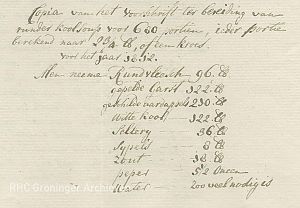 Copia van het voorschrift ter bereiding van
runder kool soup voor 630 portien, ieder portie
berekend naar 2¾ lb, of een kroes.
voor het jaar 1832.
Men neeme Rundvleesch 96 lb
gepelde Garst 122 lb
geschilde aardappels 230 lb
Witte kool 122 lb
Sellery 36 lb
Sypels 8 lb
zout 18 lb
peper 5½ Oncen
Water zoo veel nodig is
RHC Groninger Archieven